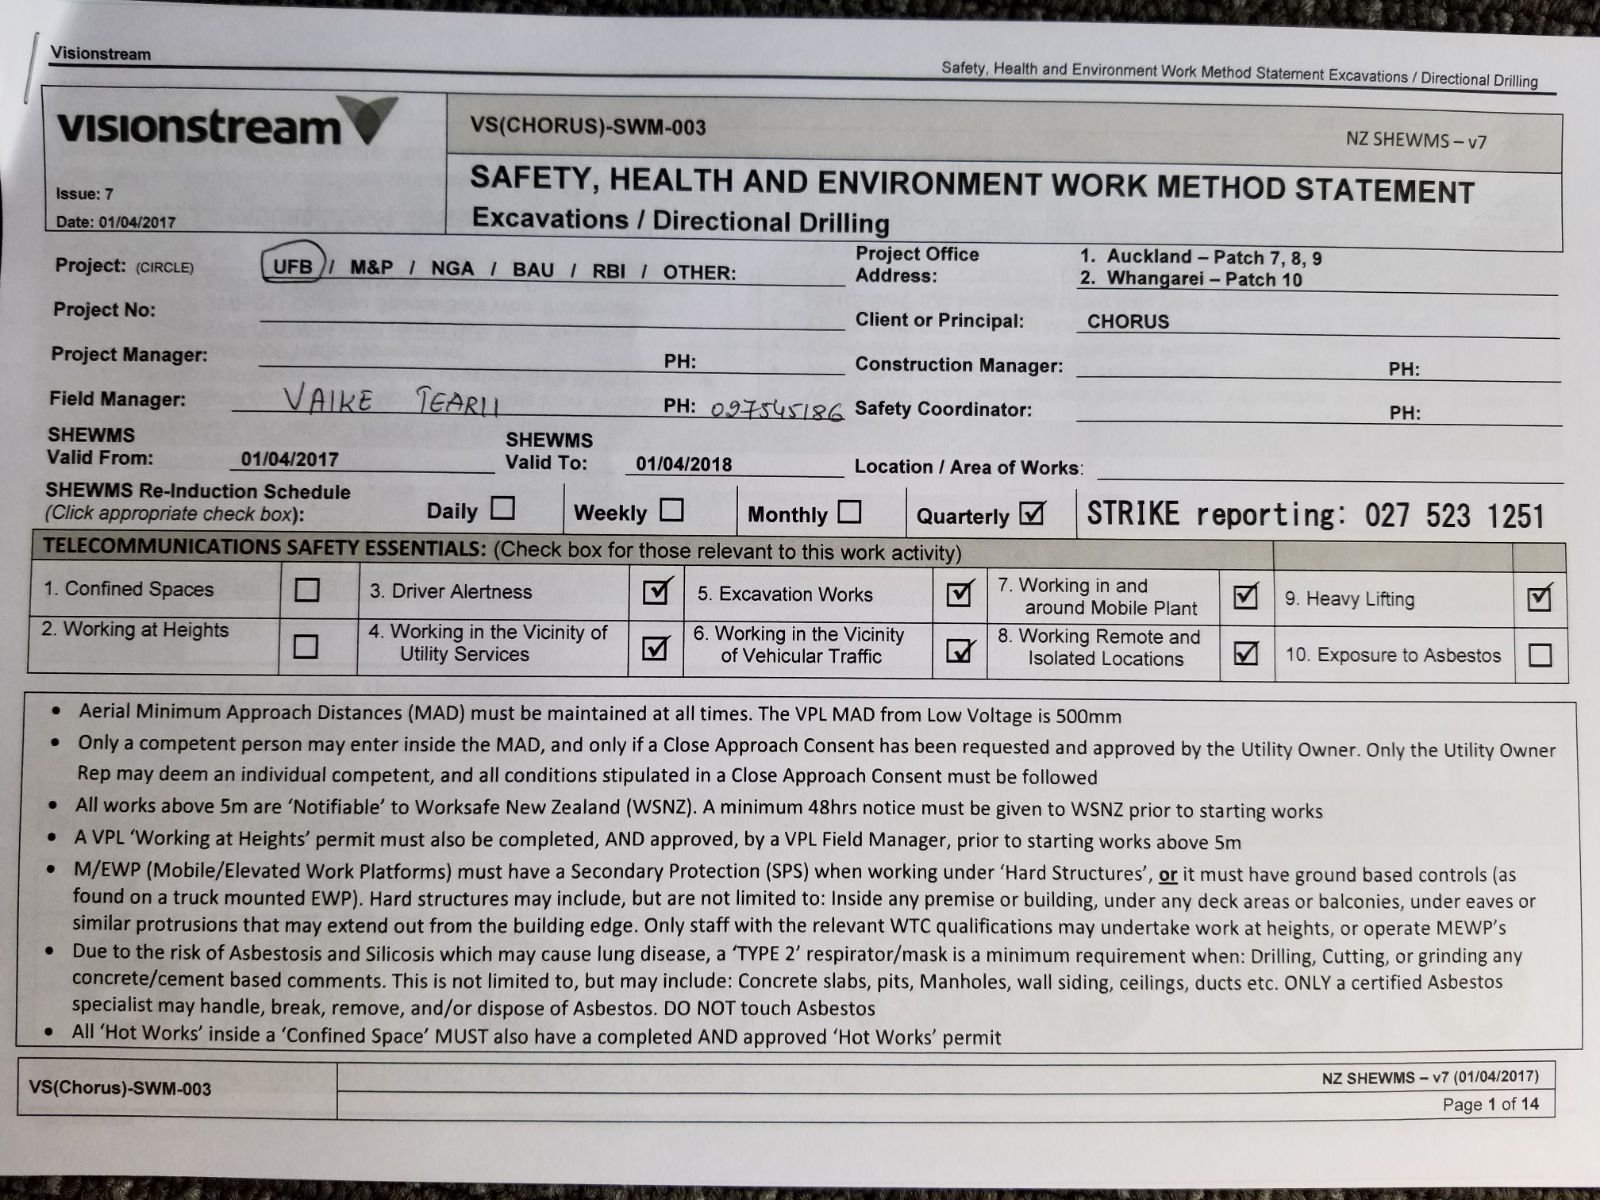 Visionstream
Safety, Health and Environment Work Method Statement Excavations / Directional Drilling
visionstream
Issue: 7
Date: 01/04/2017
VS(CHORUS)-SWM-003
NZ SHEWMS – v7
SAFETY, HEALTH AND ENVIRONMENT WORK METHOD STATEMENT
Excavations / Directional Drilling
Project: (CIRCLE) UFB / M&P / NGA / BAU / RBI / OTHER:
Project Office Address:
1. Auckland – Patch 7, 8, 9
2. Whangarei – Patch 10
Project No:
Client or Principal: CHORUS
Project Manager: PH:
Construction Manager: PH:
Field Manager: VAIKE TEARII PH: 097545186
Safety Coordinator: PH:
SHEWMS Valid From: 01/04/2017
SHEWMS Valid To: 01/04/2018
Location / Area of Works:
SHEWMS Re-Induction Schedule
(Click appropriate check box):
Daily ☐ Weekly ☐ Monthly ☐ Quarterly ☑
STRIKE reporting: 027 523 1251
TELECOMMUNICATIONS SAFETY ESSENTIALS: (Check box for those relevant to this work activity)
1. Confined Spaces ☐
3. Driver Alertness ☑
5. Excavation Works ☑
7. Working in and around Mobile Plant ☑
9. Heavy Lifting ☑
2. Working at Heights ☐
4. Working in the Vicinity of Utility Services ☑
6. Working in the Vicinity of Vehicular Traffic ☑
8. Working Remote and Isolated Locations ☑
10. Exposure to Asbestos ☐
• Aerial Minimum Approach Distances (MAD) must be maintained at all times. The VPL MAD from Low Voltage is 500mm
• Only a competent person may enter inside the MAD, and only if a Close Approach Consent has been requested and approved by the Utility Owner. Only the Utility Owner
Rep may deem an individual competent, and all conditions stipulated in a Close Approach Consent must be followed
• All works above 5m are ‘Notifiable’ to Worksafe New Zealand (WSNZ). A minimum 48hrs notice must be given to WSNZ prior to starting works
• A VPL ‘Working at Heights’ permit must also be completed, AND approved, by a VPL Field Manager, prior to starting works above 5m
• M/EWP (Mobile/Elevated Work Platforms) must have a Secondary Protection (SPS) when working under ‘Hard Structures’, or it must have ground based controls (as
found on a truck mounted EWP). Hard structures may include, but are not limited to: Inside any premise or building, under any deck areas or balconies, under eaves or
similar protrusions that may extend out from the building edge. Only staff with the relevant WTC qualifications may undertake work at heights, or operate MEWP’s
• Due to the risk of Asbestosis and Silicosis which may cause lung disease, a ‘TYPE 2’ respirator/mask is a minimum requirement when: Drilling, Cutting, or grinding any
concrete/cement based comments. This is not limited to, but may include: Concrete slabs, pits, Manholes, wall siding, ceilings, ducts etc. ONLY a certified Asbestos
specialist may handle, break, remove, and/or dispose of Asbestos. DO NOT touch Asbestos
• All ‘Hot Works’ inside a ‘Confined Space’ MUST also have a completed AND approved ‘Hot Works’ permit
VS(Chorus)-SWM-003
NZ SHEWMS – v7 (01/04/2017)
Page 1 of 14